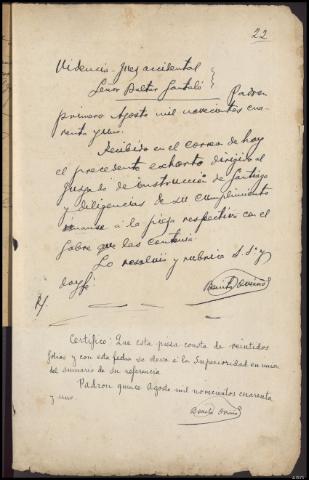 22
Videncia Juez accidental
Señor Baltar Santaló
Padron
primero Agosto mil novecientos cua-
renta y uno.
Recibido en el correo de hoy
el precedente exhorto dirigido al
Juzgado de instrucción de Santiago
y diligencias de su cumplimiento
únanse a la pieza respectiva con el
sobre que las contenía
Lo resolvió y rubrica S.Sª y
doy fé
Certifico: Que esta pieza consta de veintidos
folios y con esta fecha se eleva á la Superioridad en union
del sumario de su referencia
Padron quince Agosto mil novecientos cuarenta
y uno.